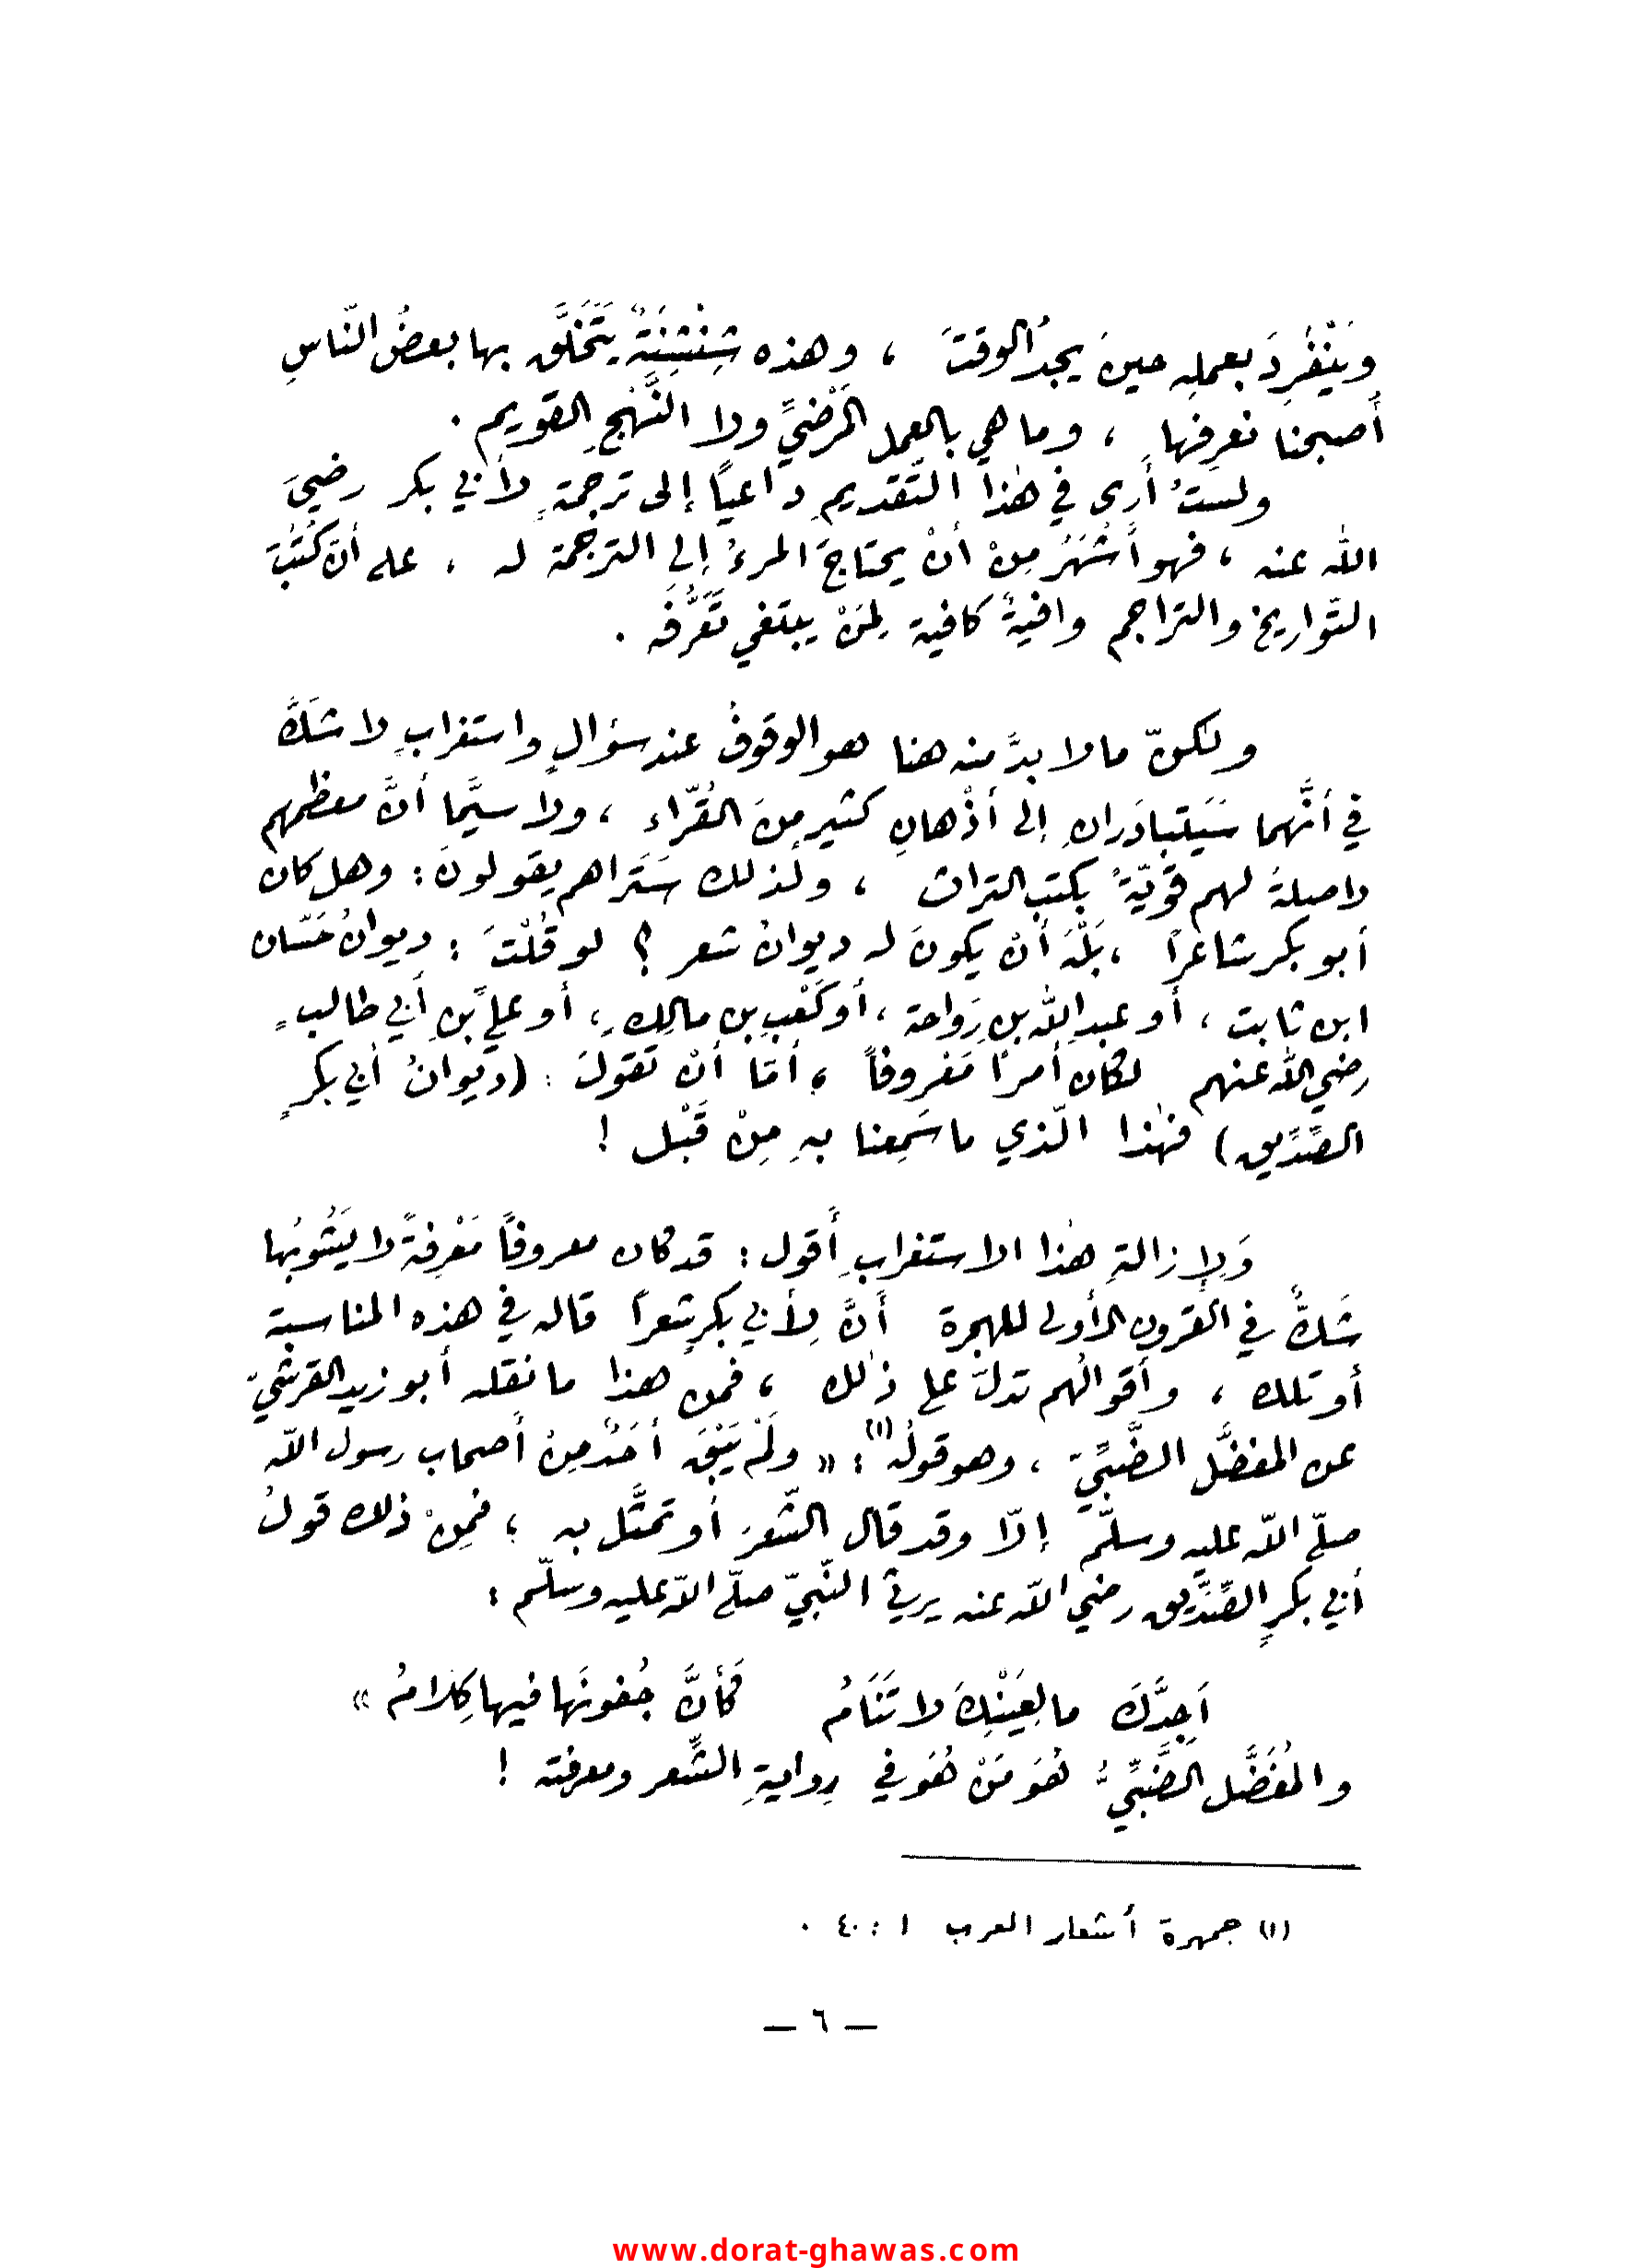 وَيَنْفَرِدَ بعملِه حينَ يجدُ الوقتَ ، وهذه شِنْشِنَةٌ يَتَخَلَّق بها بعضُ النّاسِ
أصبحنا نعرِفها ، وما هي بالعمل المَرْضيِّ ولا النَّهْجِ القويم .
ولستُ أرى في هٰذا التّقديمِ داعياً إلى ترجمةٍ لأبي بكر رضيَ
الله عنه ، فهو أَشْهَرُ مِنْ أنْ يحتاجَ المرءُ إلى الترجمة له ، على أنّ كُتُبَ
التّواريخ والتراجم وافيةٌ كافية لِمَنْ يبتغي تَعَرُّفَه .
ولكنّ ما لا بدَّ منه هنا هو الوقوفُ عند سؤالٍ واستغرابٍ لا شَكَّ
في أنَّهما سَيَتبادَرانِ إلى أذْهانِ كثيرٍ مِنَ القُرّاءِ ، ولا سيَّما أنَّ معظمهم
لا صلةَ لهم قويّةً بكتب التراث ، ولذلك سَتَراهم يقولونَ : وهل كان
أبو بكر شاعراً ، بَلْهَ أنْ يكونَ له ديوانُ شعر ؟ لو قُلْتَ : ديوانُ حَسّان
ابن ثابت ، أو عبدِ اللّٰه بنِ رَواحة ، أو كَعْبِ بنِ مالِكٍ ، أو عليِّ بنِ أبي طالبٍ
رضي اللّٰه عنهم لكان أمراً مَعْروفاً ؛ أمّا أنْ تقولَ : (ديوانُ أبي بكرٍ
الصِّدِّيق) فهٰذا الّذي ما سَمِعنا بهِ مِنْ قَبْل !
وَلِإزالةِ هٰذا الاستغرابِ أَقول : قد كان معروفاً مَعْرِفةً لا يَشُوبُها
شَكٌّ في القرون الأولى للهجرة أَنَّ لِأبي بكرٍ شعراً قاله في هذه المناسبة
أو تلك ، وأقوالُهم تدلّ على ذٰلك ، فمن هٰذا ما نقله أبو زيد القرشيّ
عن المفضَّل الضَّبِّيّ ، وهو قولُه (١) : « ولَمْ يَبْقَ أَحَدٌ مِنْ أصحاب رسول اللّه
صلّى اللّه عليه وسلَّم إلّا وقد قال الشّعرَ أو تمثَّل به ؛ فمِنْ ذلك قولُ
أبي بكرٍ الصِّدِّيق رضي اللّه عنه يرثي النّبيّ صلّى اللّه عليه وسلّم :
أَجِدَّكَ ما لِعَيْنِكَ لا تَنَامُ كَأَنَّ جُفونَها فيها كِلَامُ »
والمُفَضَّل الضَّبِّيُّ هُوَ مَنْ هُوَ في رِوايةِ الشِّعر ومعرفته !
(١) جمهرة أشعار العرب ١ : ٤٠ .
— ٦ —
www.dorat-ghawas.com